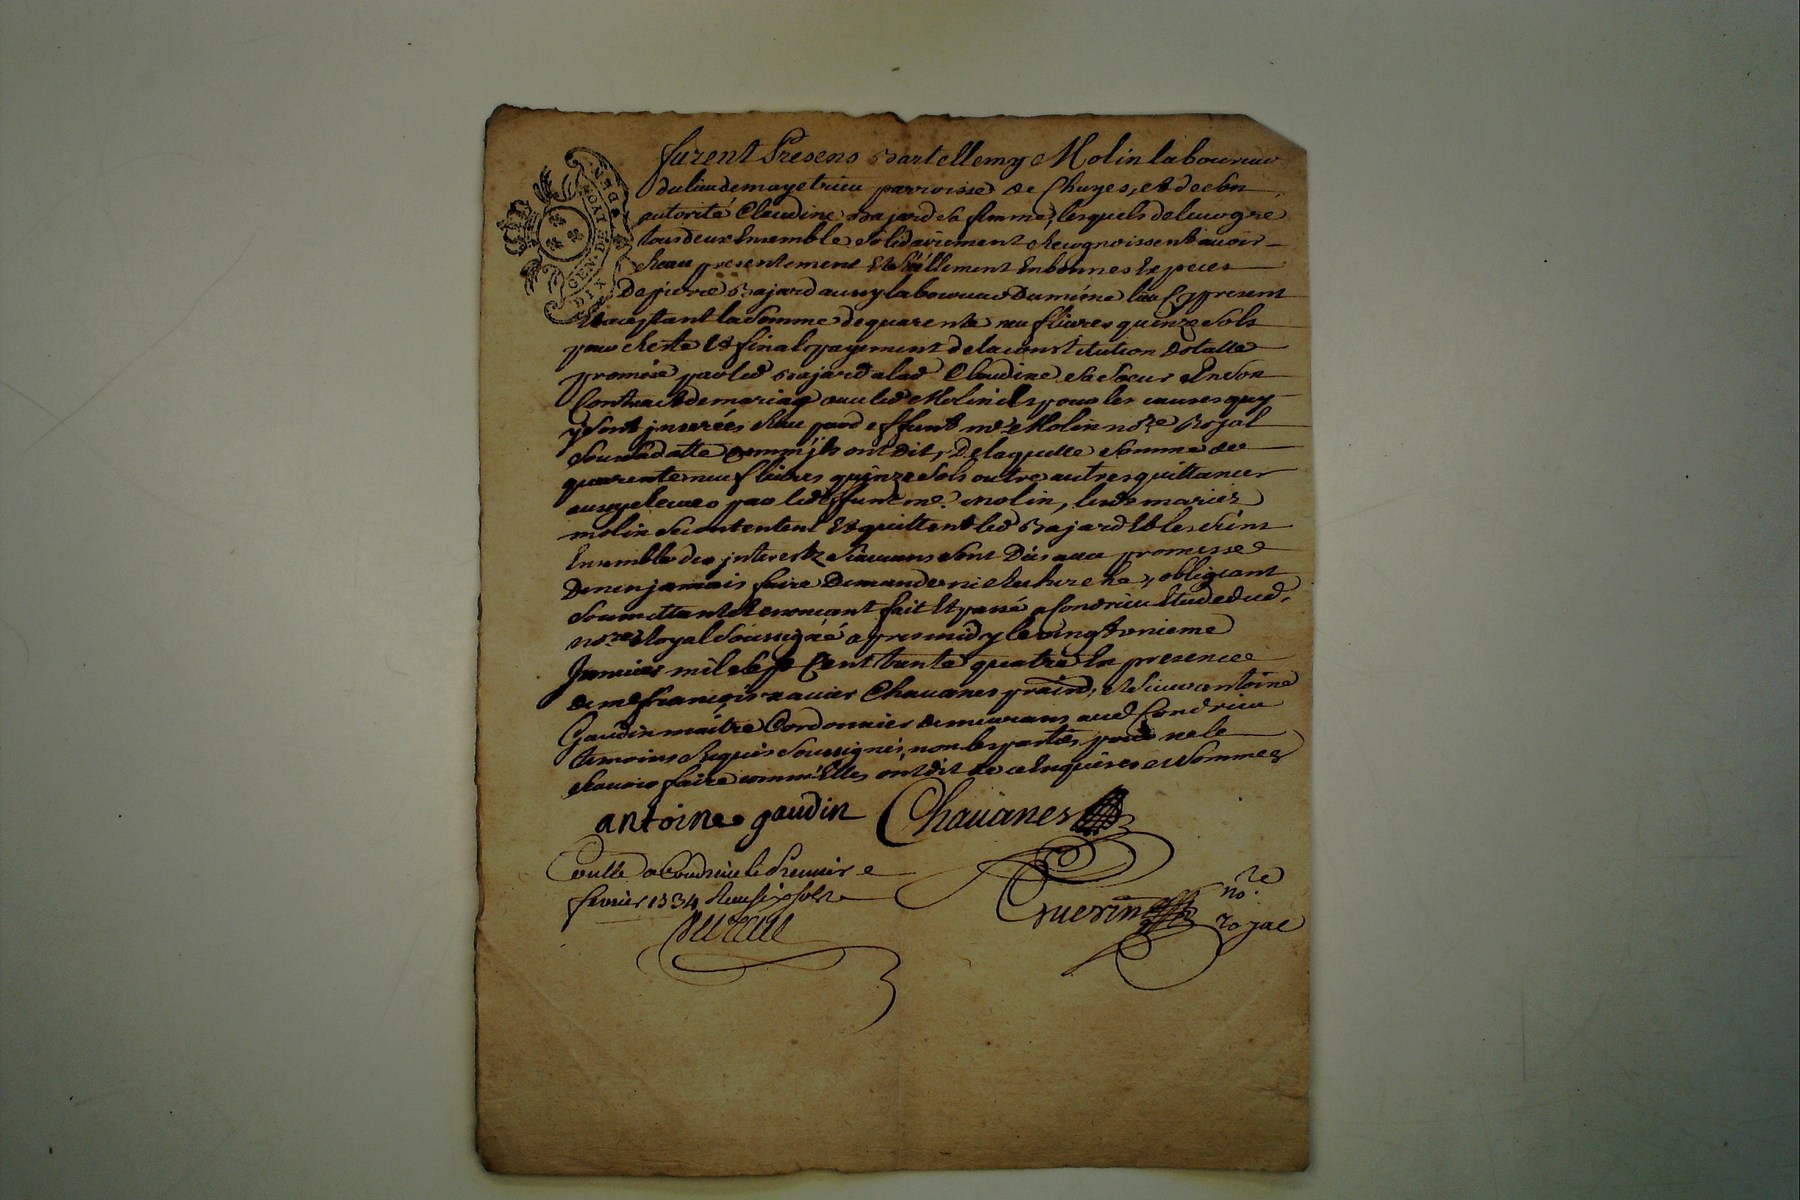 furent Presens Bartellemy Molin laboureur
du lieu de mayetrieu parroisse de Chuyes, et de son
autorité Claudine Bajard sa femme, lesquels de leur gré
tous deux Ensemble solidairement Recognoissent avoir
Receu presentement Et Réellement En bonnes Especes
De pierre Bajard aussy laboureur Du même lieu Cy present
Et aceptant la somme de quarente neuf livres quinze sols
pour Reste Et final payement de la constitution Dotalle
promise par led Bajard a lad Claudine sa soeur En son
Contract de mariage avec led Molin Et pour les causes quy
y sont inserées Receu par deffunt me Molin nore Royal
sous sa datte comm'ils ont dit, De laquelle somme de
quarente neuf livres quinze sols outre autres quittances
aussy Receues par led deffunt me molin, lesd mariez
molin se contentent Et quittent led Bajard Et les siens
Ensemble des interestz si aucuns sont Dûs avec promesse
De n'en jamais faire Demande ni Recherche, obligeant
soumettant Et Renonçant fait Et passé a Condrieu Etude dud.
nore Royal soussigné apres midy le vingt unieme
Janvier mil sept Cent trente quatre En presence
de me françois xavier Chavanes praind, et sieur antoine
Gaudin maître Cordonnier demeurans aud Condrieu
temoins Requis soussignés, non les parties pour ne le
sçavoir faire comm'Elles ont dit de ce Enquises et sommées
antoine gaudin Chauanes
Conllé a Condrieu le Premier
fevrier 1734 Receu six sols
Guerin nore
royal
DEN. LYON
GEN.